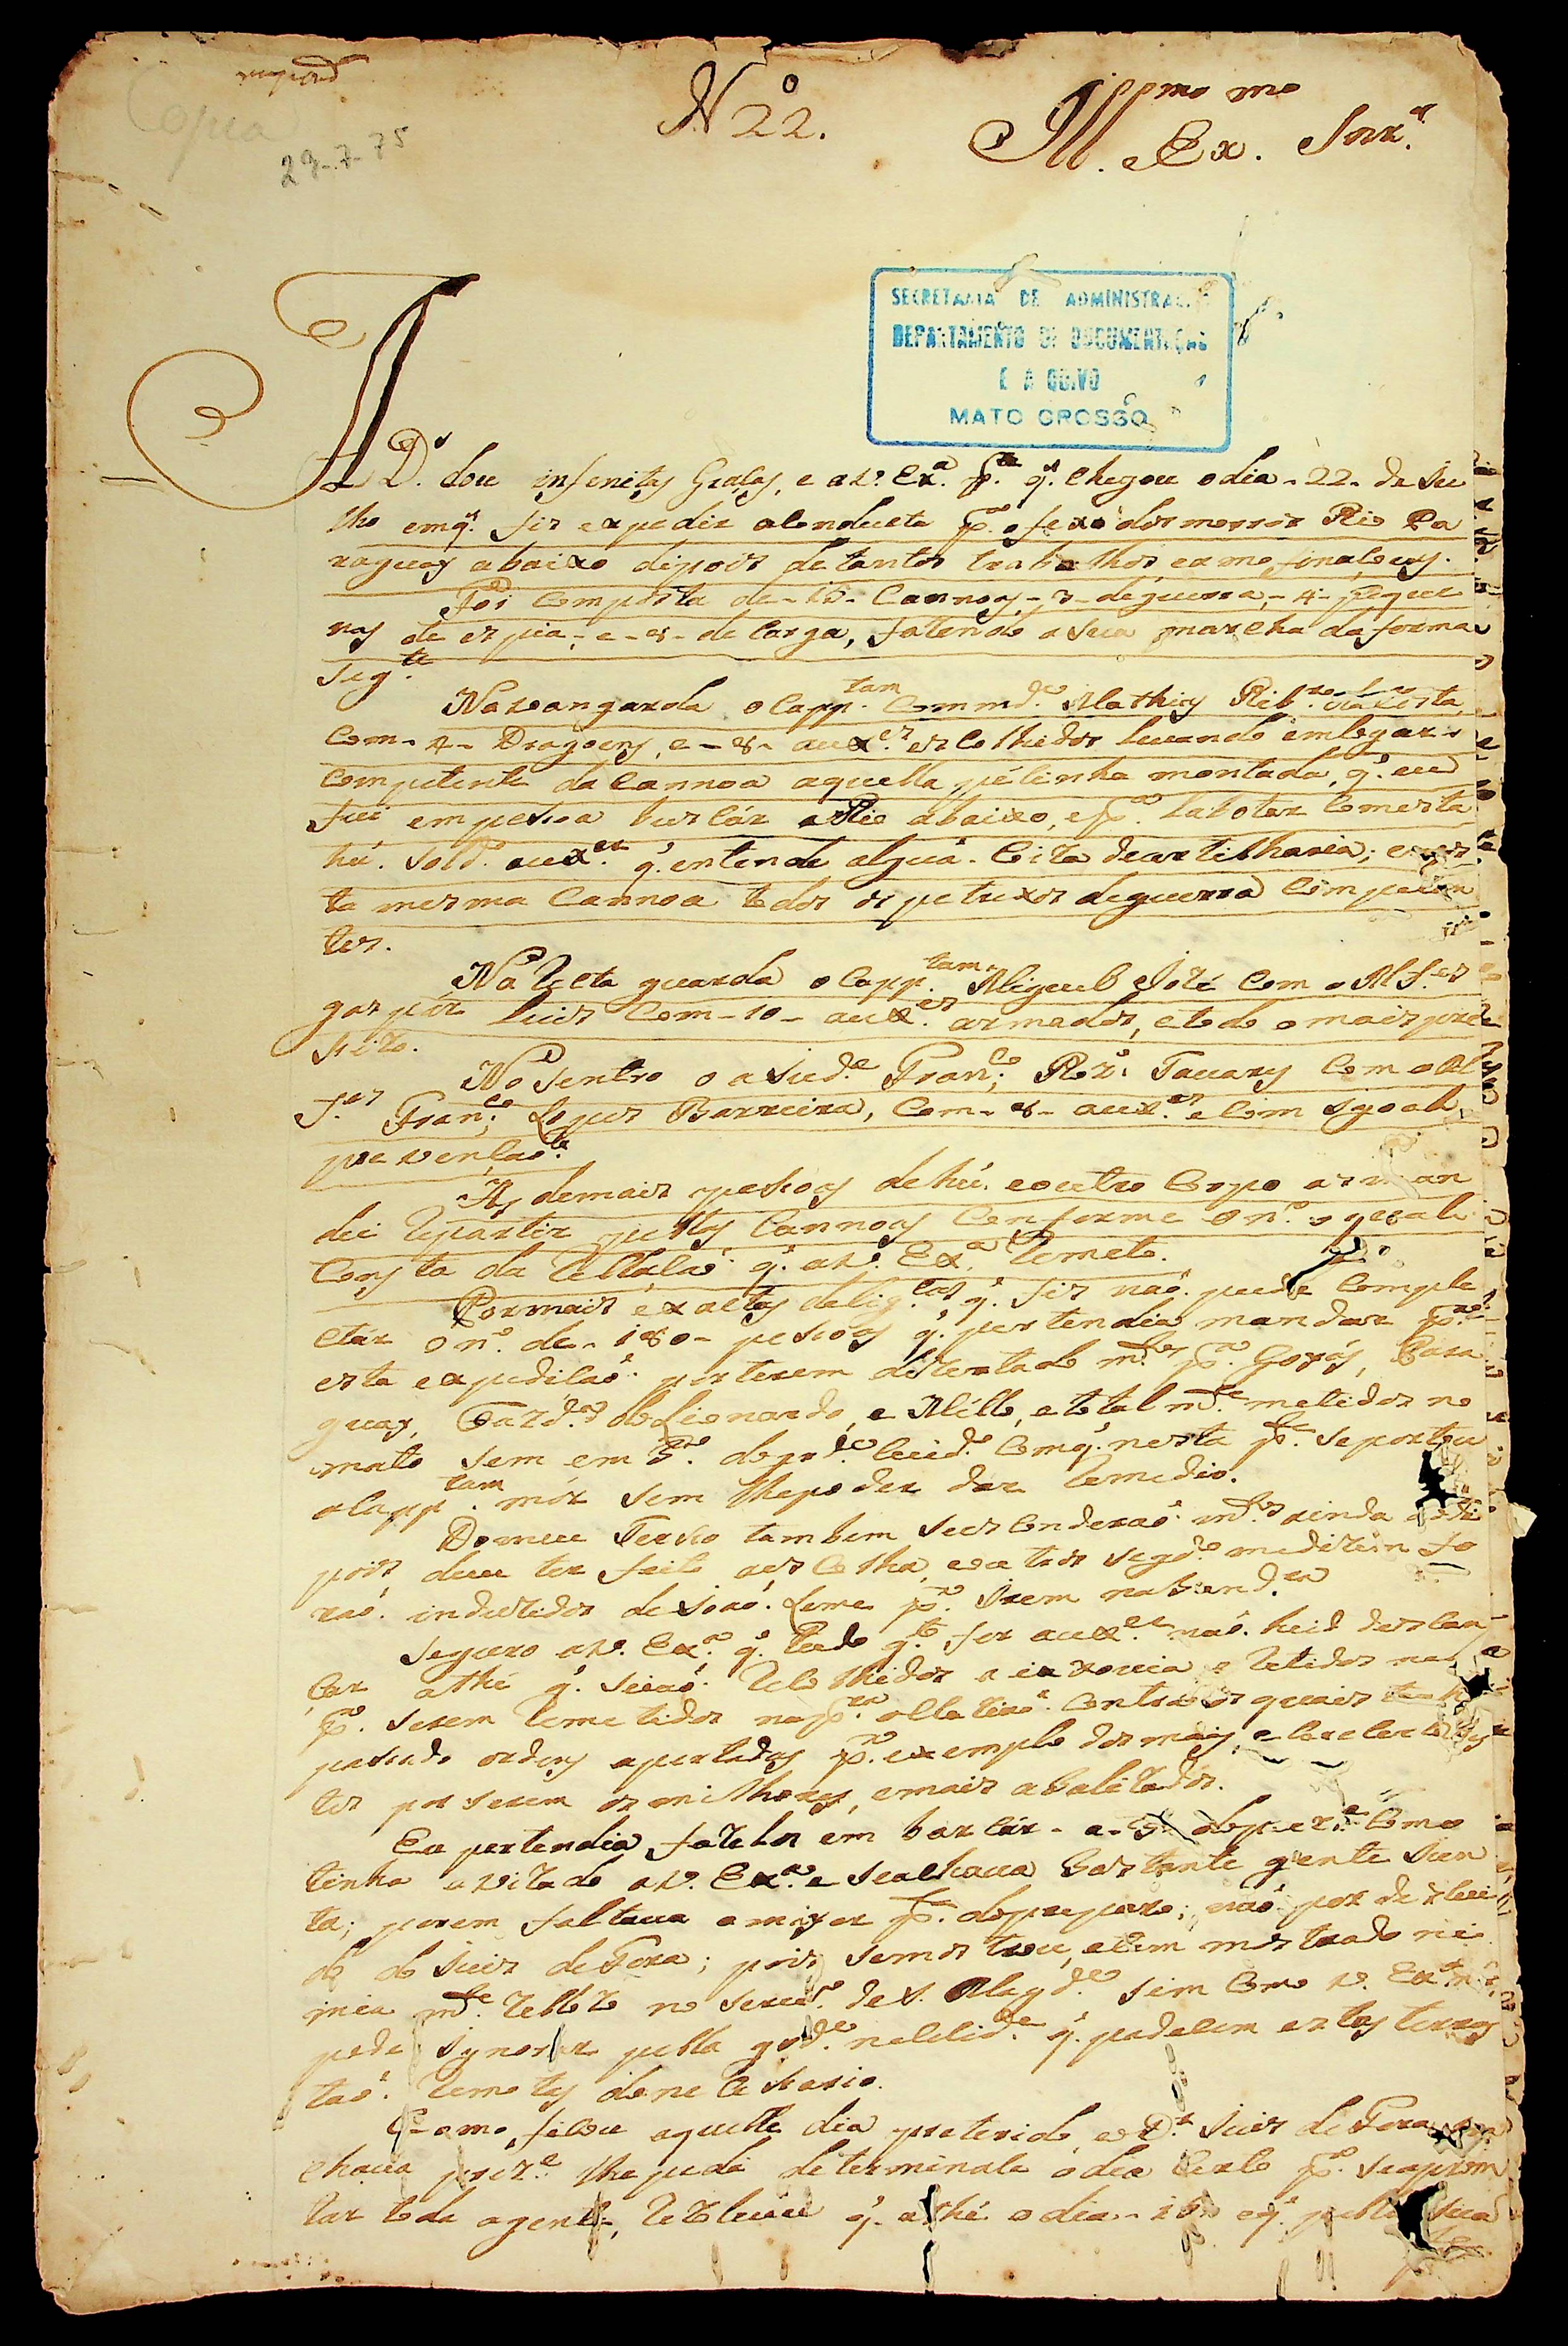 respond.
Copia
29-7-75
Nº 22.
Ill.mo Ex.mo Snr.
SECRETARIA DE ADMINISTRAÇÃO
DEPARTAMENTO DE DOCUMENTAÇÃO
E ARQUIVO
MATO GROSSO
A D.s dou infenitas Graças, e a V. Ex.a q. chegou o dia - 22 - de Ju
lho em q. fiz expedir a conducta p.a o fexo dos morros Rio Pa
raguay abaixo dipois de tantos trabalhos, e amofinaçoens.
Foi Composta de - 15 - Cannoas - 3 - de guerra, - 4 - peque
nas de espia, - e - 8 - de Carga, fazendo a sua marcha da forma
seg.te
Na vanguarda o Capp.tam Comm.de Mathias Rib.ro da Costa
Com - 4 - Dragoens, e - 8 - aux.es escolhidos levando em logar
Competente da Cannoa aquella pessinha montada, q. eu
fui em pessoa buscár a Rio abaixo, e p.a laborar Com esta
hú. sold.o aux.ar q. entende alguã. Coiza de artilharia; e nes
ta mesma Cannoa todos os petrexos de guerra Competen
tes.
Na Retaguarda o Capp.tam Miguel José Com o Alf.es
gaspár Luis Com - 10 - aux.es armados, e todo o mais pre
sizo.
No Sentro o asud.e Fran.co Roz. Tavares Com o Al
f.es Fran.co Lopes Barreira, Com - 8 - aux.es e Com igoal
prevenção.
As demais pessoas de hú. e outro Corpo as man
dei repartir pellas Cannoas Conforme o n.o o qual
Consta da rellação. q. a V. Ex.a remeto.
Por mais exactas delig.cas q. fiz não. pude Comple
ctar o n.o de - 180 - pessoas q. pertendia mandar p.a
esta expedição. por terem dezertado m.tos p.a Goyás, Para
guay, Fazd.as do Lionardo, e Mello, e total m.te metidos no
mato sem em b.o do gr.de cuid.o Com q. nesta p.te se portou
o Capp.tam mór sem lhe poder dar remedio.
Do meu Terso tambem se esconderão. m.tos ainda a di
pois de eu ter feito a escolha, e outros segd.o me dizem fo
rão. induzidos de João. Leme p.a irem na band.ra
Seguro a V. Ex.a q. tudo q.to for aux.ar não. heid descan
çar athé q. sejão. recolhidos a inxovia e retidos nas
p.a serem remetidos na pr.a ollazião. Contra os quais tenho
passado ordens apertadas p.a exemplo dos mais,
tes por serem os milhores, e mais abalizados.
Eu pertendia fazelos em barcár - a - do pr.e Como
tinha avizado a V. Ex.a e se achava bastante gente Jun
ta; porem faltava a mayor p.te do preparo; não por descui
do do Juis de Fora; pois se mostrou, e tem mostrado ni
mia m.te zelozo no serv.o de S. Mag.de sim Como V. Ex.a não
pode ignorar pella grd.e nelesid.e q. padecem estas terras
tão. remotas do necessario.
Como ficou aquelle dia preterido, e o D.r Juis de Fora se a
chava prez.e lhe pedi determinase o dia Certo p.a se apron
tar toda a gente, rezolveu q. athé o dia - 15 - e q. pella sua